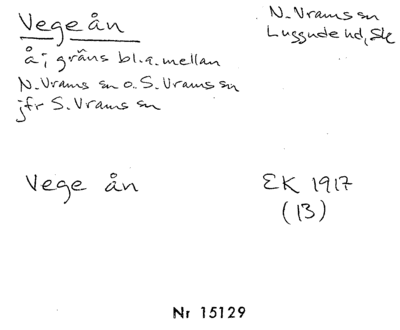 Vegeån
N. Vrams sn
Luggude hd, Sk
å; gräns bl.a. mellan
N. Vrams sn o. S. Vrams sn
jfr S. Vrams sn
Vege ån
EK 1917
(13)
Nr 15129